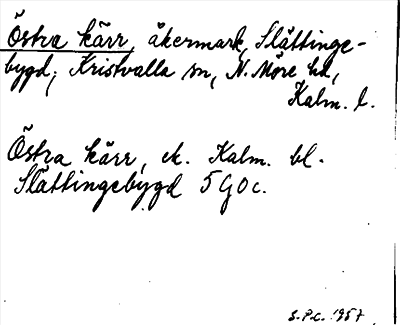 Östra kärr, åkermark, Slättinge-
bygd, Kristvalla sn, N. Möre hd,
Kalm. l.
Östra kärr, ek. Kalm. bl.
Slättingebygd 5 G O c.
S.P.C. 1957